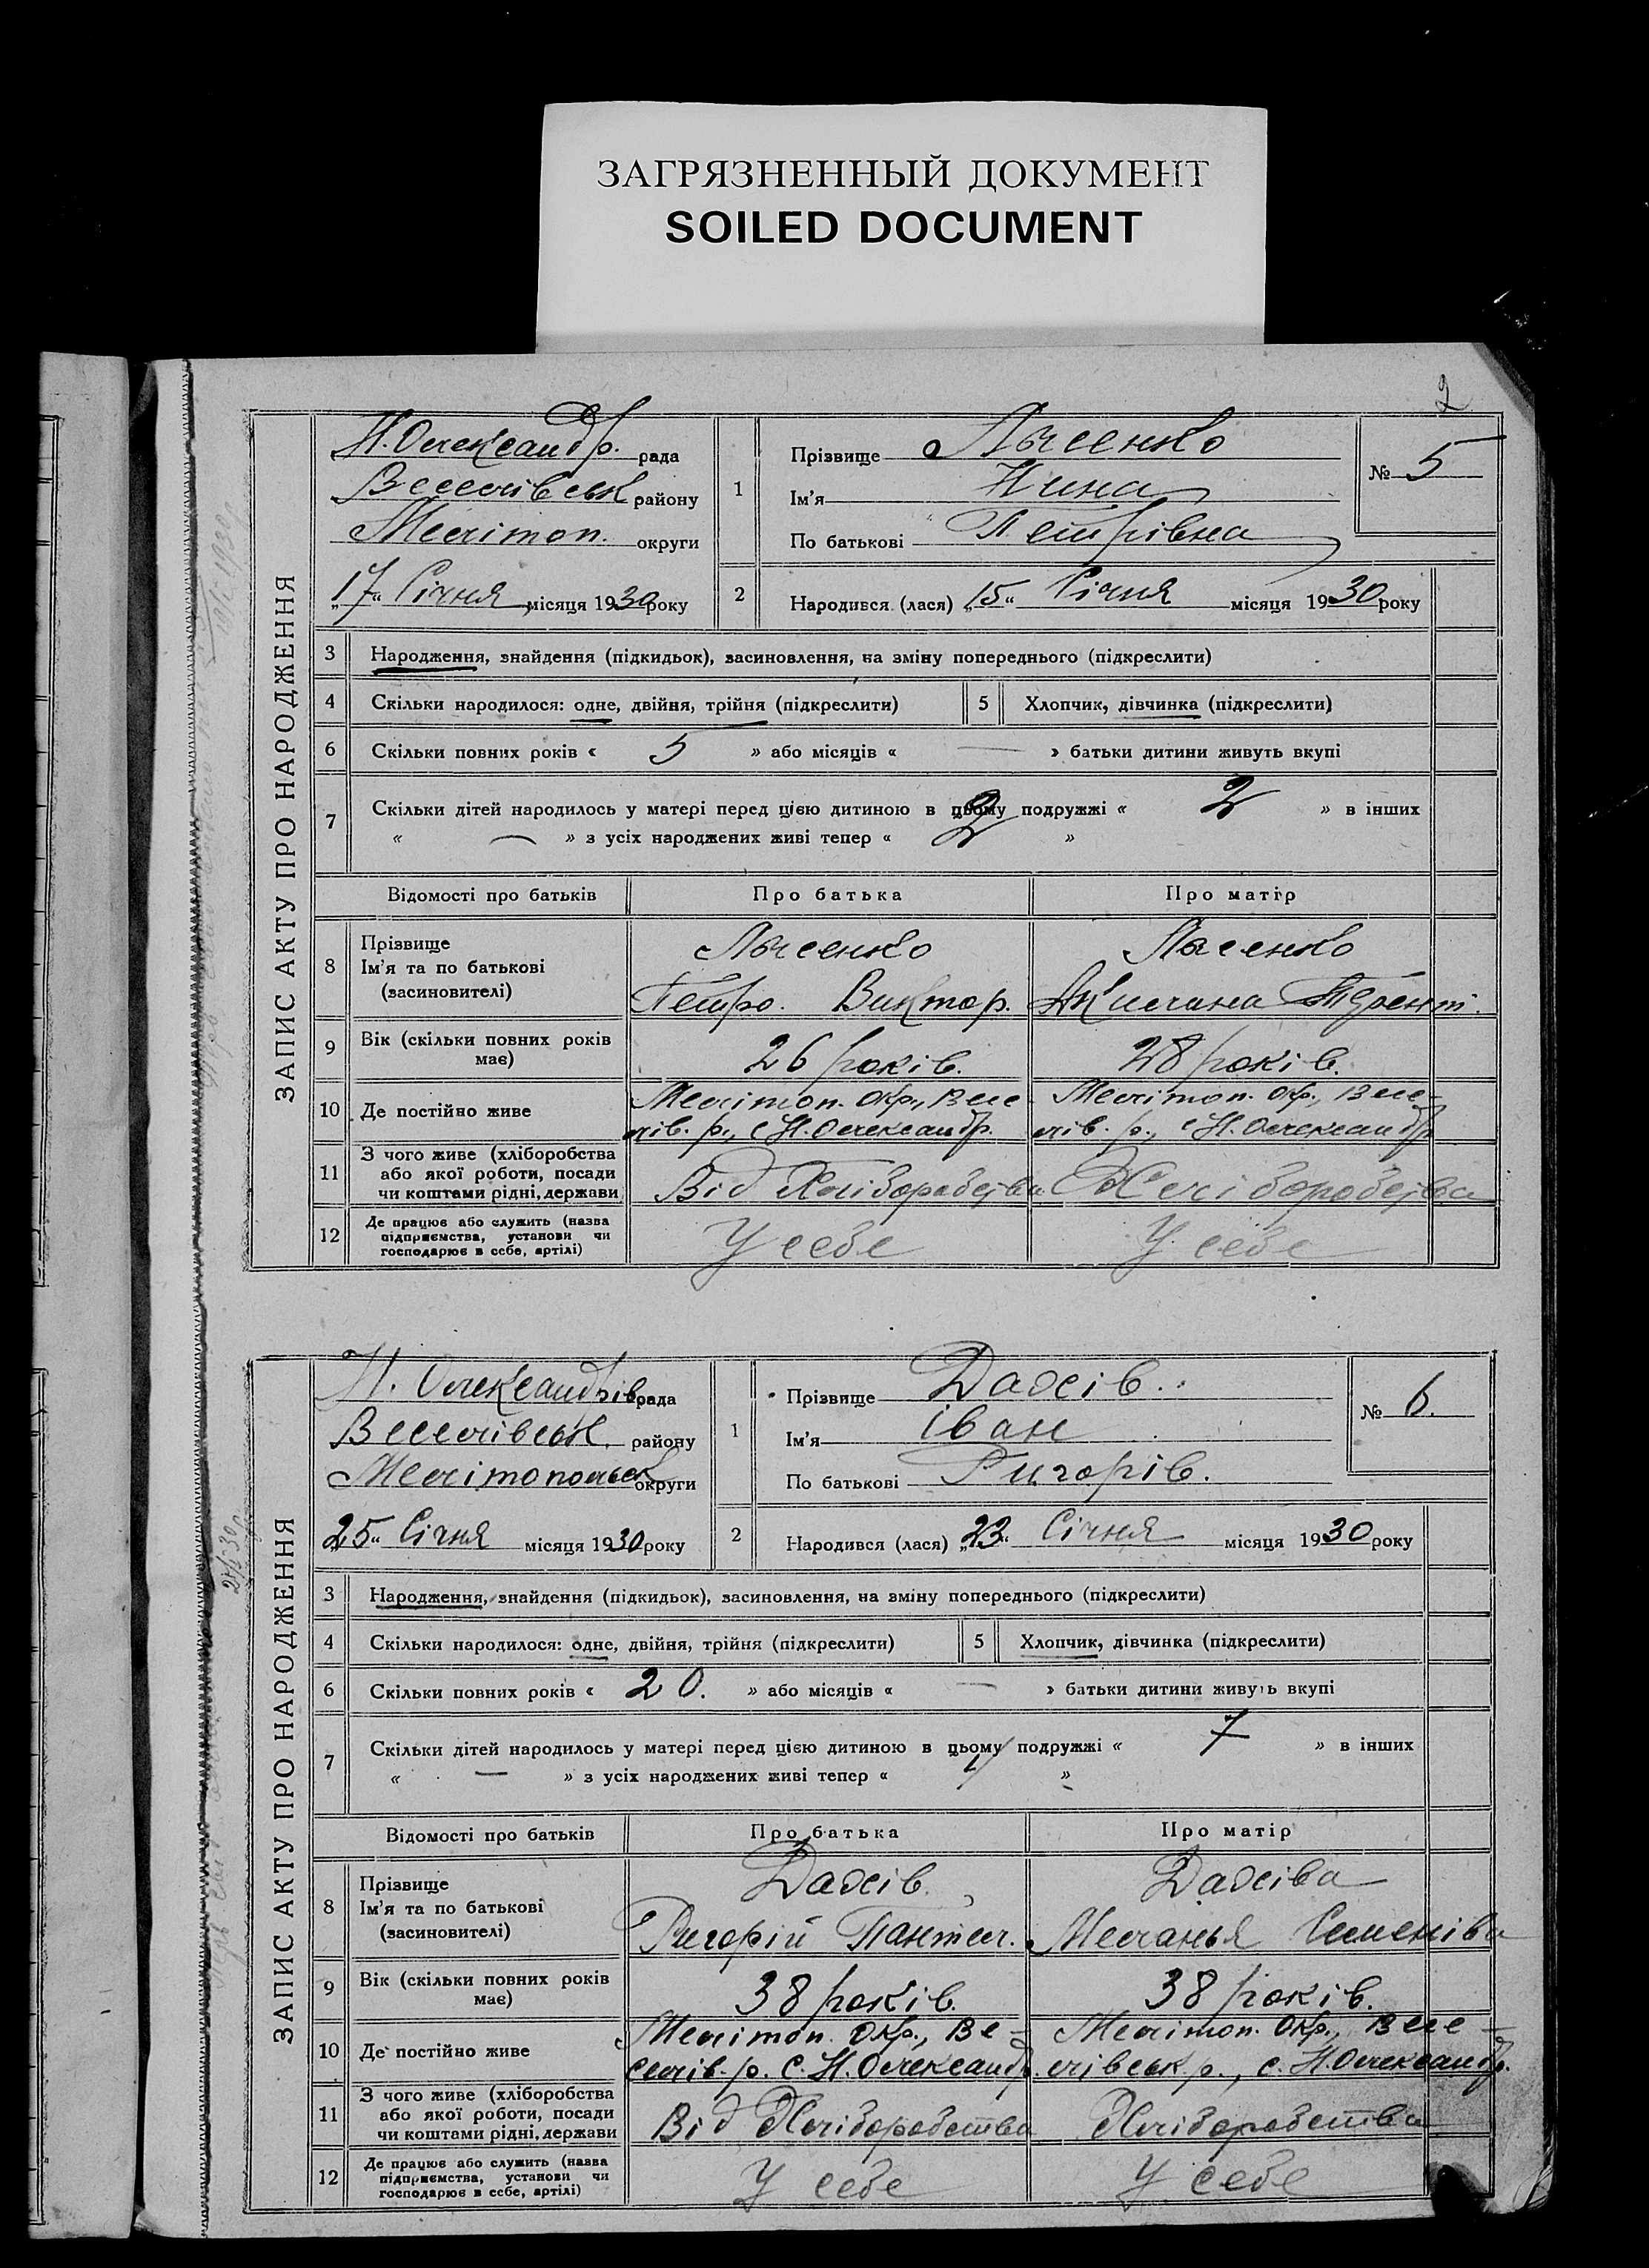 ЗАГРЯЗНЕННЫЙ ДОКУМЕНТ
SOILED DOCUMENT
2
ЗАПИС АКТУ ПРО НАРОДЖЕННЯ
Н. Олександр. рада
Веселівськ району
Меліт оп. округи
„17“ Січня місяця 1930 року
1
Прізвище Лысенко
Ім'я Нина
По батькові Петрівна
№ 5
2
Народився (лася) „15“ Січня місяця 1930 року
3 Народження, знайдення (підкидьок), засиновлення, на зміну попереднього (підкреслити)
4 Скільки народилося: одне, двійня, трійня (підкреслити) 5 Хлопчик, дівчинка (підкреслити)
6 Скільки повних років « 5 » або місяців « — » батьки дитини живуть вкупі
7 Скільки дітей народилось у матері перед цією дитиною в цьому подружжі « 2 » в інших
« — » з усіх народжених живі тепер « 2 »
Відомості про батьків Про батька Про матір
8 Прізвище
Ім'я та по батькові
(засиновителі)
Лысенко
Петро. Виктор.
Лысенко
Акилина
9 Вік (скільки повних років
має)
26 років.
28 років.
10 Де постійно живе
Меліт оп. Окр., Весе
лів. р., с Н. Олександр.
Меліт оп. Окр., Весе-
лів. р., с Н. Олександр
11 З чого живе (хліборобства
або якої роботи, посади
чи коштами рідні, держави
Від Хліборобства
Хліборобства
12 Де працює або служить (назва
підприємства, установи чи
господарює в себе, артілі)
У себе
У себе
ЗАПИС АКТУ ПРО НАРОДЖЕННЯ
Н. Олександрів рада
Веселівськ. району
Мелітопольськ округи
„25“ Січня місяця 1930 року
1
Прізвище Дахів.
Ім'я Іван
По батькові Григорів.
№ 6.
2
Народився (лася) „23“ Січня місяця 1930 року
3 Народження, знайдення (підкидьок), засиновлення, на зміну попереднього (підкреслити)
4 Скільки народилося: одне, двійня, трійня (підкреслити) 5 Хлопчик, дівчинка (підкреслити)
6 Скільки повних років « 20. » або місяців « — » батьки дитини живуть вкупі
7 Скільки дітей народилось у матері перед цією дитиною в цьому подружжі « 7 » в інших
« — » з усіх народжених живі тепер « 4 »
Відомості про батьків Про батька Про матір
8 Прізвище
Ім'я та по батькові
(засиновителі)
Дахів.
Григорій Пантел.
Дахіва
Меланья Семенівн
9 Вік (скільки повних років
має)
38 років.
38 років.
10 Де постійно живе
Меліт оп. Окр., Ве-
селів. р. с. Н. Олександр.
Меліт оп. Окр., Весе-
лівськ р., с. Н. Олександр.
11 З чого живе (хліборобства
або якої роботи, посади
чи коштами рідні, держави
Від Хліборобства
Хліборобства
12 Де працює або служить (назва
підприємства, установи чи
господарює в себе, артілі)
У себе
У себе